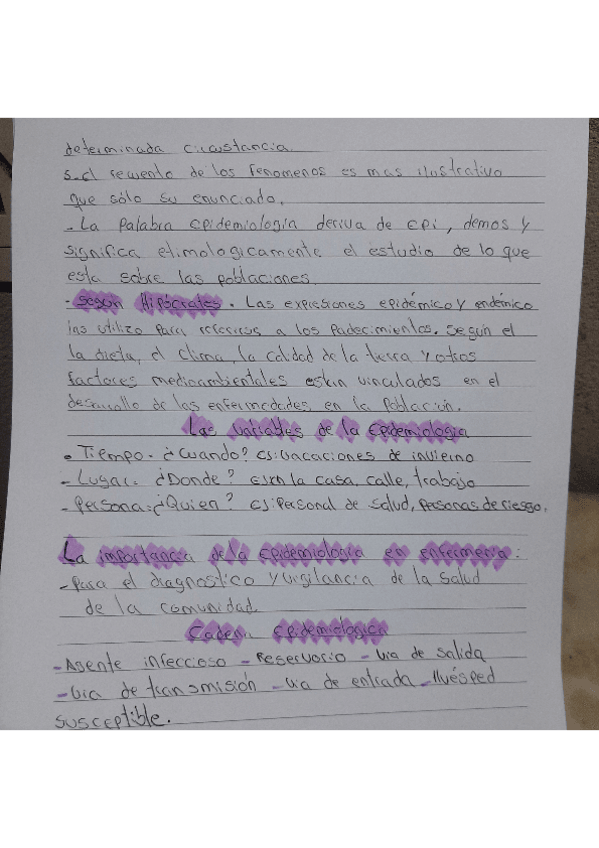 determinada circustancia.
5-el recuento de los fenomenos es mas ilustrativo
que sólo su enunciado.
- La Palabra epidemiología deriva de epi, demos y
significa etimologicamente el estudio de lo que
esta sobre las poblaciones.
- Según Hipócrates. Las expresiones epidémico y endémico
las utilizo para referirse a los Padecimientos. Según el
la dieta, el clima, la calidad de la tierra y otros
factores medioambientales están vinculados en el
desarrollo de las enfermedades en la Población.
Las variables de la epidemiologia
• Tiempo. ¿Cuando? ej: vacaciones de invierno
- Lugar: ¿Donde? ej: en la casa, calle, trabajo
- Persona: ¿Quien? ej: Personal de salud, personas de riesgo.
La importancia de la epidemiologia en enfermeria:
- Para el diagnostico y vigilancia de la salud
de la comunidad.
Cadena epidemiologica
- Agente infeccioso - Reservorio - via de salida
- via de transmisión - via de entrada - Huésped
susceptible.